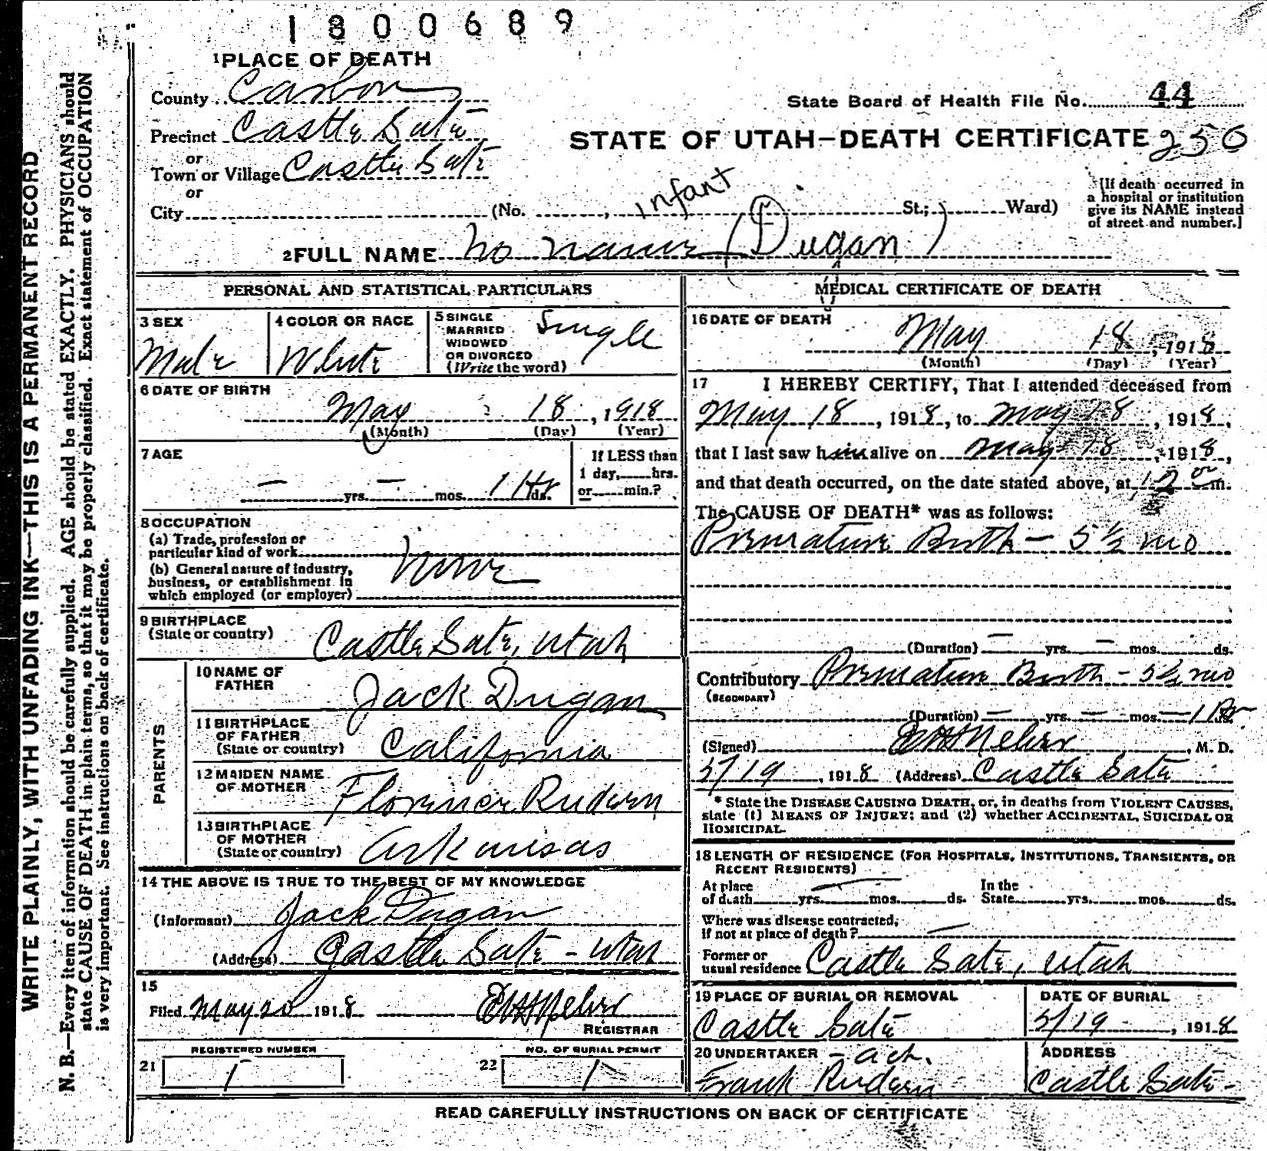 1800689
1 PLACE OF DEATH
County Carbon
State Board of Health File No. 44
Precinct Castle Gate
STATE OF UTAH—DEATH CERTIFICATE 250
or
Town or Village Castle Gate
or
City (No. , St.; Ward)
[If death occurred in
a hospital or institution
give its NAME instead
of street and number.]
infant
2 FULL NAME No name (Dugan)
PERSONAL AND STATISTICAL PARTICULARS
3 SEX
Male
4 COLOR OR RACE
White
5 SINGLE
MARRIED
WIDOWED
OR DIVORCED
(Write the word)
Single
6 DATE OF BIRTH
May 18, 1918
(Month) (Day) (Year)
7 AGE
— yrs. — mos. 1 Hr ds.
If LESS than
1 day, hrs.
or min.?
8 OCCUPATION
(a) Trade, profession or
particular kind of work
(b) General nature of industry,
business, or establishment in
which employed (or employer)
None
9 BIRTHPLACE
(State or country)
Castle Gate, Utah
PARENTS
10 NAME OF
FATHER
Jack Dugan
11 BIRTHPLACE
OF FATHER
(State or country)
California
12 MAIDEN NAME
OF MOTHER
Florence Rudern
13 BIRTHPLACE
OF MOTHER
(State or country)
Arkansas
14 THE ABOVE IS TRUE TO THE BEST OF MY KNOWLEDGE
(Informant) Jack Dugan
(Address) Castle Gate - Utah
15
Filed May 20 1918
REGISTRAR
REGISTERED NUMBER
21 1
NO. OF BURIAL PERMIT
22 1
MEDICAL CERTIFICATE OF DEATH
16 DATE OF DEATH
May 18, 1918
(Month) (Day) (Year)
17 I HEREBY CERTIFY, That I attended deceased from
May 18, 1918, to May 18, 1918,
that I last saw him alive on May 18, 1918,
and that death occurred, on the date stated above, at 12 m.
The CAUSE OF DEATH* was as follows:
Premature Birth — 5½ mo
(Duration) — yrs. — mos. ds.
Contributory Premature Birth - 5½ mo
(SECONDARY)
(Duration) — yrs. — mos. — 1 Hr
(Signed) , M. D.
5/19, 1918 (Address) Castle Gate
* State the DISEASE CAUSING DEATH, or, in deaths from VIOLENT CAUSES,
state (1) MEANS OF INJURY; and (2) whether ACCIDENTAL, SUICIDAL OR
HOMICIDAL.
18 LENGTH OF RESIDENCE (FOR HOSPITALS, INSTITUTIONS, TRANSIENTS, OR
RECENT RESIDENTS)
At place
of death yrs. mos. ds.
In the
State yrs. mos. ds.
Where was disease contracted,
if not at place of death? —
Former or
usual residence Castle Gate, Utah
19 PLACE OF BURIAL OR REMOVAL
Castle Gate
DATE OF BURIAL
5/19, 1918
20 UNDERTAKER - act.
Frank Rudern
ADDRESS
Castle Gate -
READ CAREFULLY INSTRUCTIONS ON BACK OF CERTIFICATE
WRITE PLAINLY, WITH UNFADING INK—THIS IS A PERMANENT RECORD
N. B.—Every item of information should be carefully supplied. AGE should be stated EXACTLY. PHYSICIANS should
state CAUSE OF DEATH in plain terms, so that it may be properly classified. Exact statement of OCCUPATION
is very important. See instructions on back of certificate.